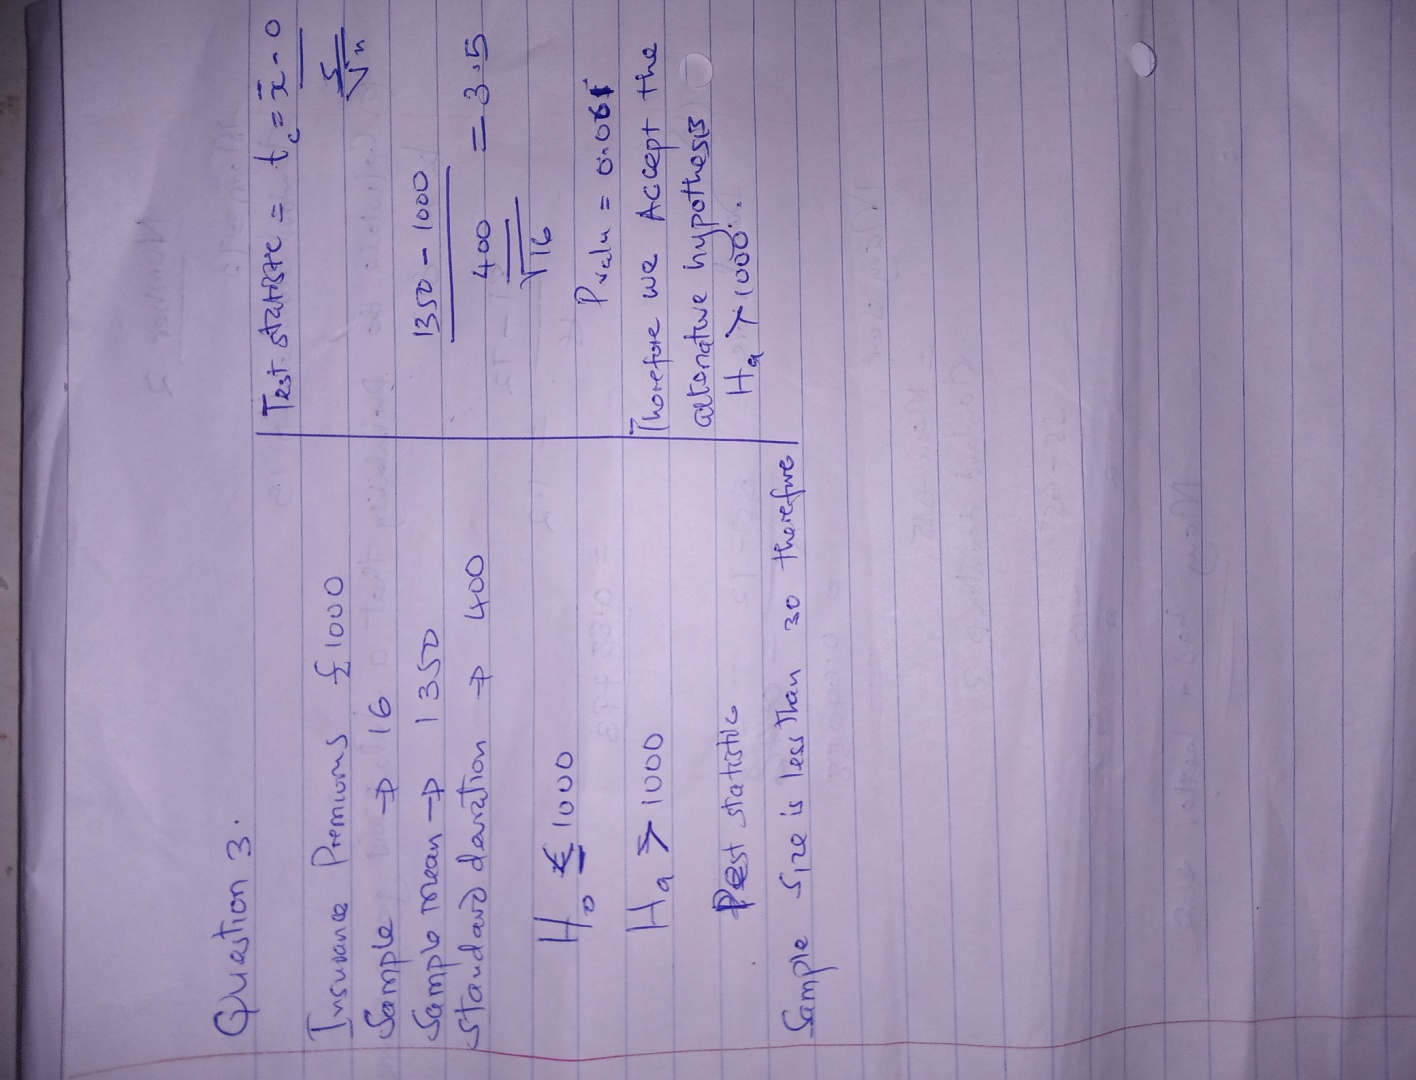 Question 3.
Insurance Premiums £1000
Sample → 16
Sample mean → 1350
Standard deviation → 400
H₀ ≤ 1000
Hₐ > 1000
Test statistic
Sample Size is less than 30 therefore
Test statistic = t_c = x̄ - 0
s
√n
1350 - 1000
400 = 3.5
√16
P valu =
Therefore we Accept the
alternative hypothesis
Hₐ > 1000.